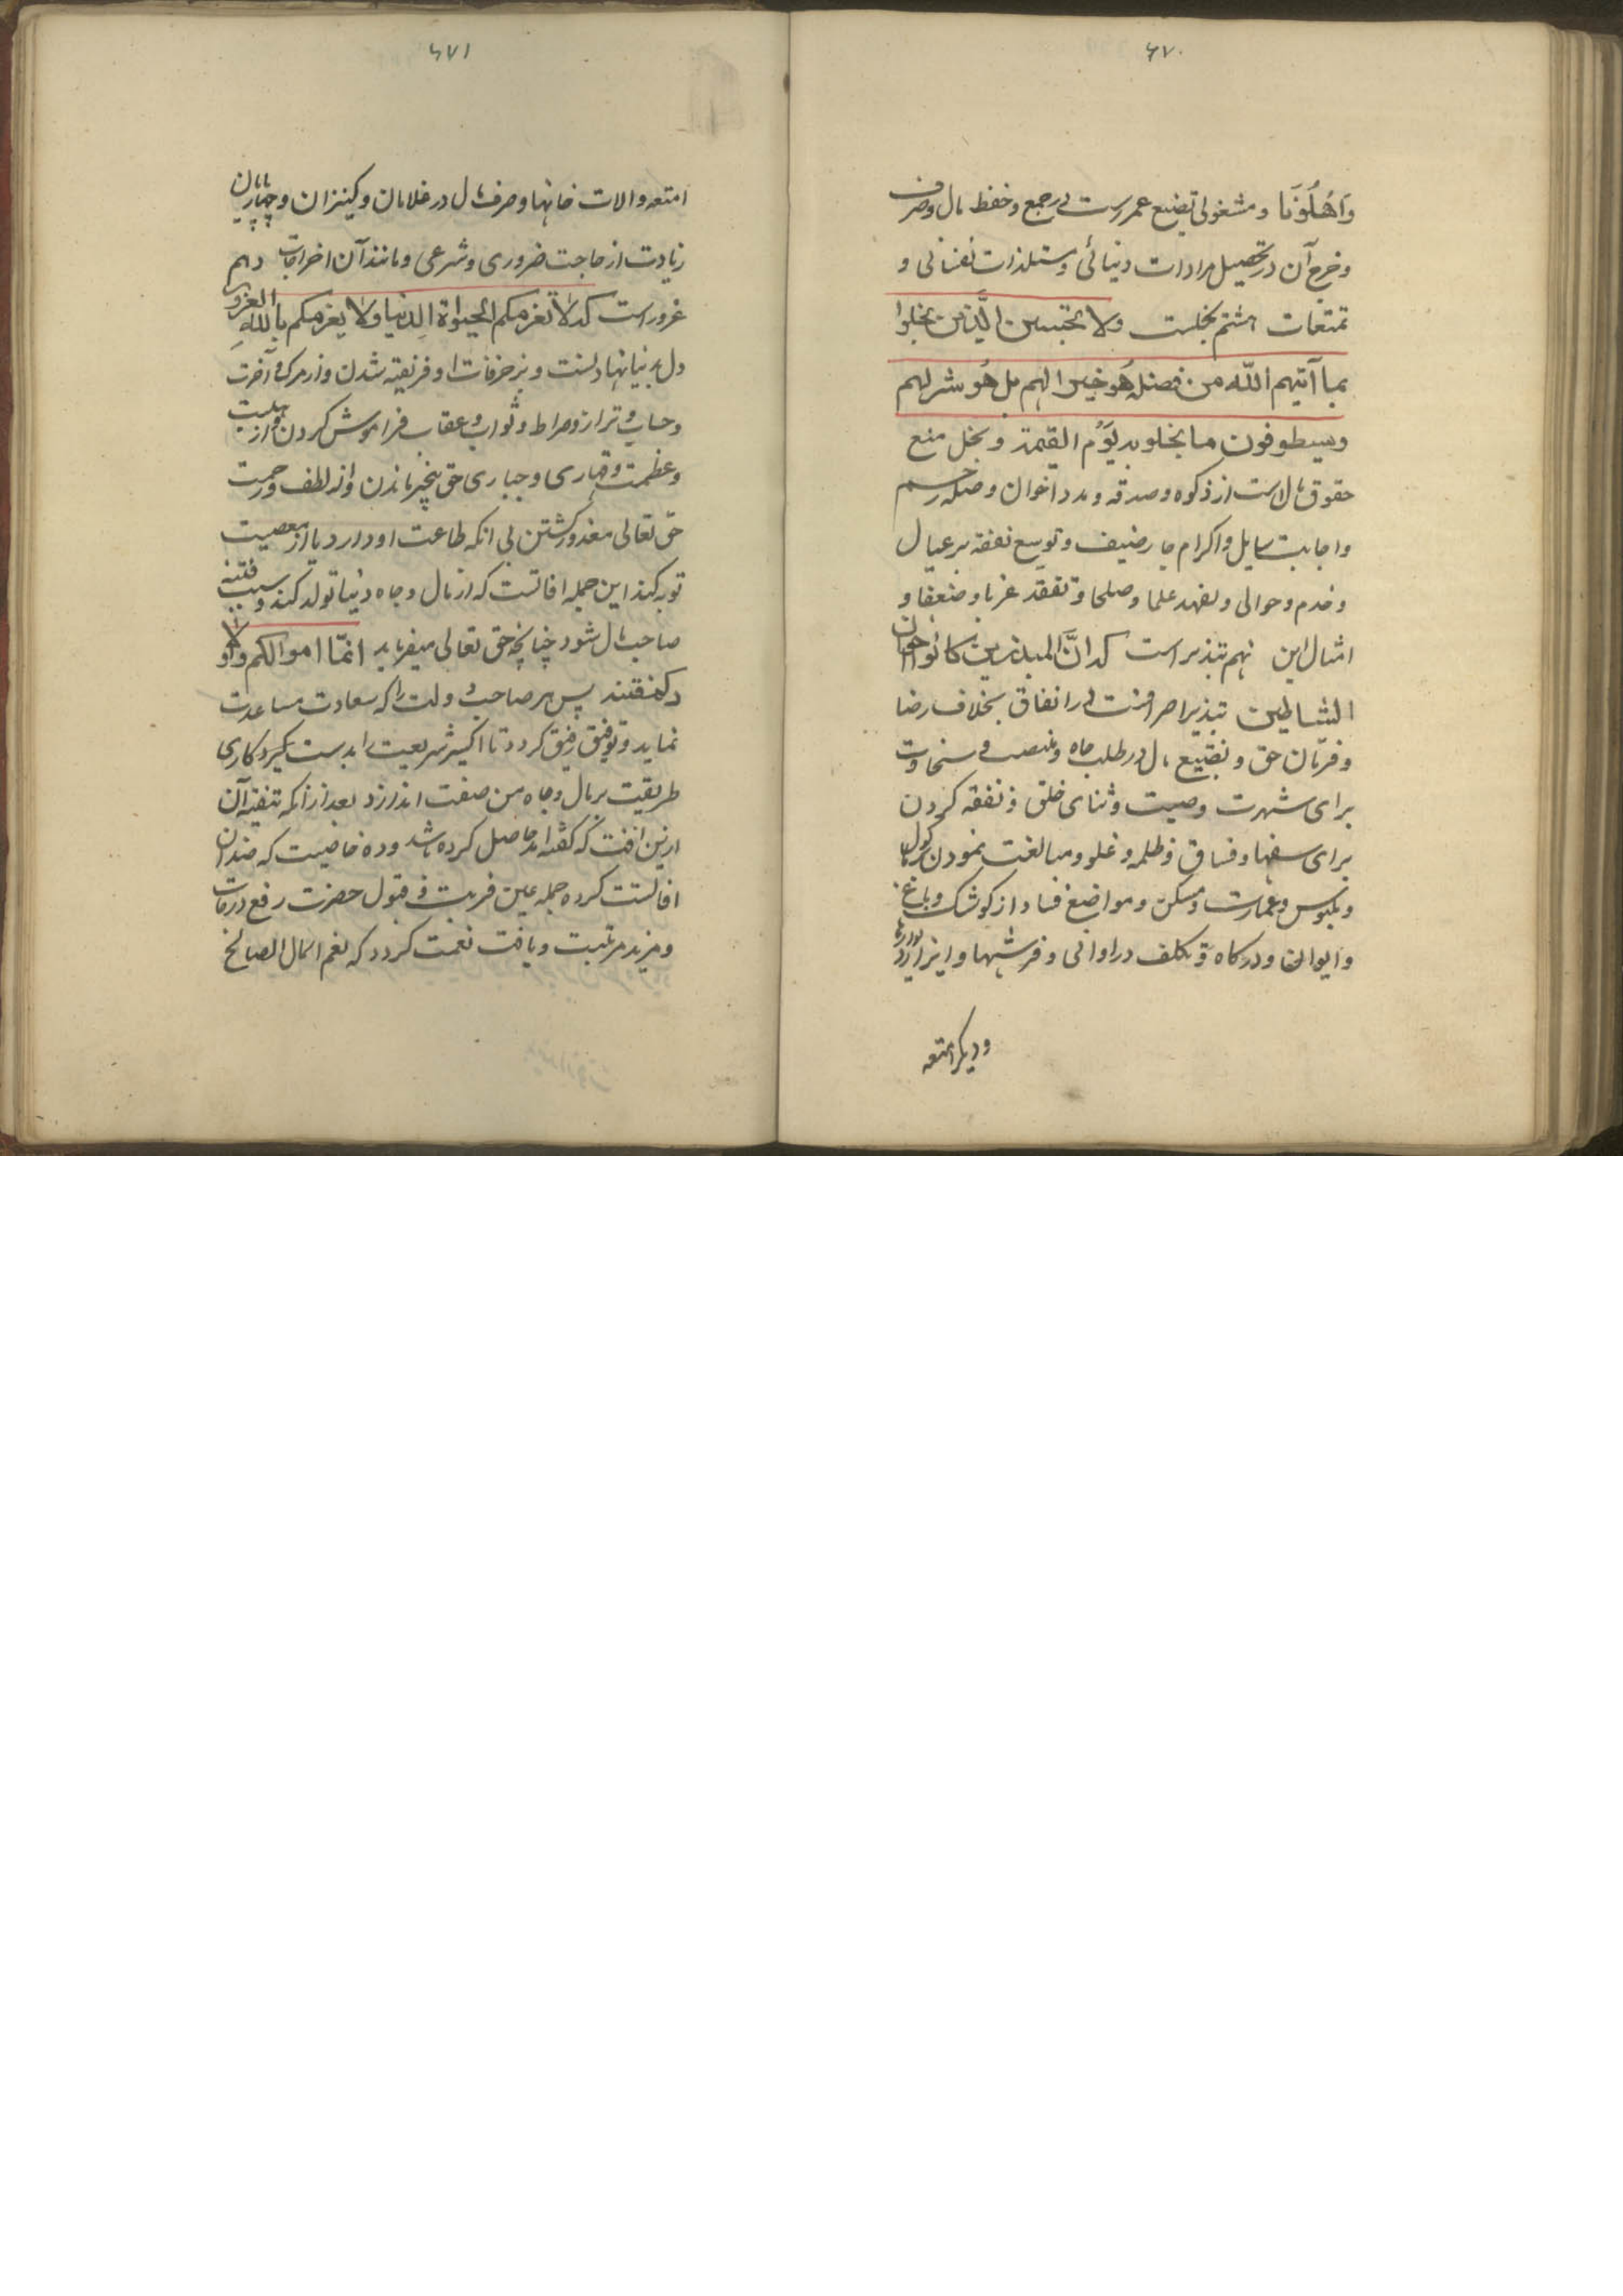 ۶۷۰
واهلونا و مشغولی تضیع عمرست در جمع و حفظ مال و صرف
و خرج آن در تحصیل مرادات دنیائی و مستلذات نفسانی و
تمتعات هشتم بخلست ولا تحسبن الَّذین یبخلوا
بما آتیهم اللّه من فضله هُو خیرا لهم بل هُو شر لهم
وسیطوقون ما بخلو به یَوُم القیمة و بخل منع
حقوق مالست از زکوه و صدقه و مدد اخوان و صله رحم
و اجابت سایل و اکرام جار ضیف و توسیع نفقه بر عیال
و خدم و حوالی و تعهد علما و صلحا و تفقد غربا و ضعفا و
امثال این نهم تبذیر است که انَّ المبذرین کانوا اخوان
الشیاطین تبذیر اصرافست در انفاق بخلاف رضا
و فرمان حق و تضییع مال در طلب جاه و منصب و سخاوت
برای شهرت و صیت و ثنای خلق و نفقه کردن
برای سفها و فساق و ظلمه و غلو و مبالغت نمودن در ماکول
و ملبوس و عمارت و مسکن و مواضع فساد از کوشک و باغ
و ایوان و درکاه و تکلف در اوانی و فرشها و
و دیکر امتعه
۶۷۱
امتعه و الات خانها و صرف مال در غلامان و کنیزان و چهارپایان
زیادت از حاجت ضروری و شرعی و مانند آن اخراجات دهم
غرور است که لا تغرمکم الحیواة الدنیا ولا یغرمکم باللهِ الغرور
دل بدنیا نهادنست و بزخرفات او فریفته شدن و از مرک و آخرت
و حساب و ترازو صراط و ثواب و عقاب فراموش کردن و از هیبت
و عظمت و قهاری و جباری حق بیخبر ماندن و از لطف و رحمت
حق تعالی مغرور کشتن بی انکه طاعت او دارد یا از معصیت
توبه کند این جمله افاتست که از مال و جاه دنیا تولد کند و سبب فتنه
صاحب مال شود چنانچه حق تعالی میفرماید انمّا اموالکم واولا
دکم فتنه پس هر صاحب دولت را که سعادت مساعدت
نماید و توفیق رفیق کردد تا اکسیر شریعت بدست کیرد کاری
طریقت بر مال و جاه من صفت اندازد بعد از آنکه تنقیه آن
ازین افت که کفته امد حاصل کرده باشد و ده خاصیت که ضد آن
افاتست کرده جمله عین قربت و قبول حضرت رفع درجات
و مزید مرتبت و یافت نعمت کردد که نعم المال الصالح